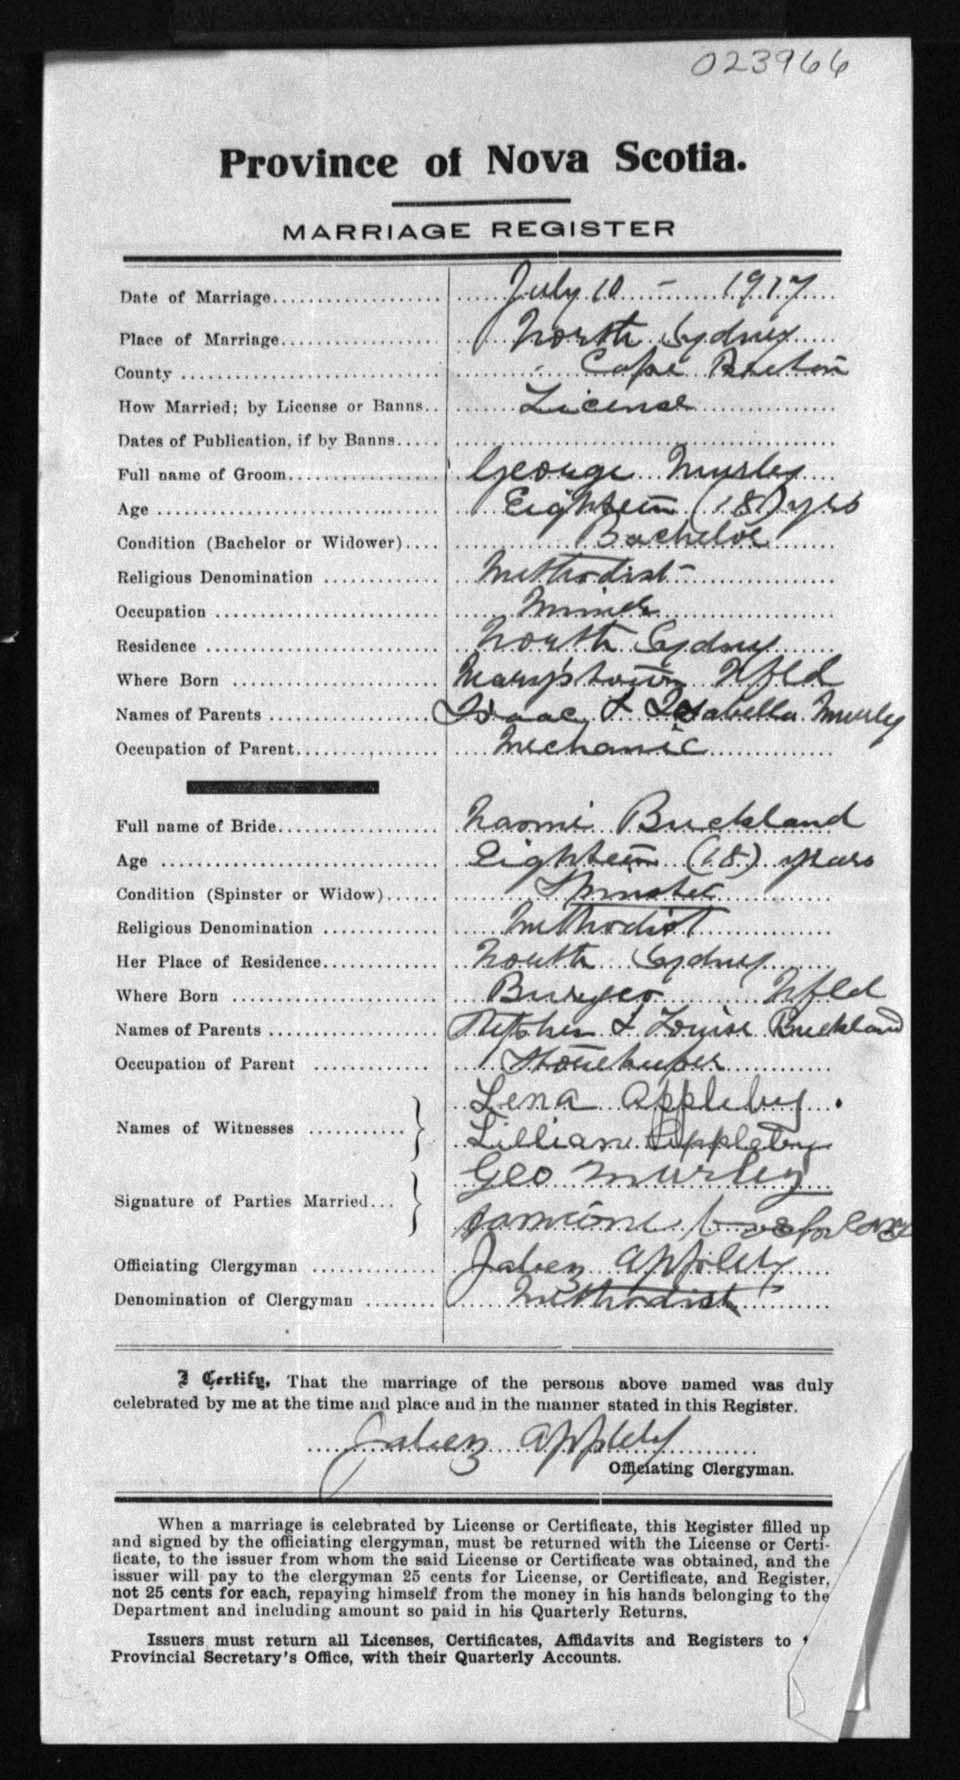 023966
Province of Nova Scotia.
MARRIAGE REGISTER
Date of Marriage July 10 - 1917
Place of Marriage North Sydney
County Cape Breton
How Married; by License or Banns License
Dates of Publication, if by Banns
Full name of Groom George Murley
Age Eighteen (18) yrs
Condition (Bachelor or Widower) Bachelor
Religious Denomination Methodist
Occupation Miner
Residence North Sydney
Where Born Marystown Nfld
Names of Parents Isaac & Isabella Murley
Occupation of Parent Mechanic
Full name of Bride Naomi Buckland
Age Eighteen (18) years
Condition (Spinster or Widow) Spinster
Religious Denomination Methodist
Her Place of Residence North Sydney
Where Born Burgeo Nfld
Names of Parents Stephen & Louise Buckland
Occupation of Parent Storekeeper
Names of Witnesses Lena Appleby.
Lillian Appleby
Signature of Parties Married Geo Murley
Officiating Clergyman Jabez Appleby
Denomination of Clergyman Methodist
I Certify, That the marriage of the persons above named was duly
celebrated by me at the time and place and in the manner stated in this Register.
Jabez Appleby
Officiating Clergyman.
When a marriage is celebrated by License or Certificate, this Register filled up
and signed by the officiating clergyman, must be returned with the License or Certi-
ficate, to the issuer from whom the said License or Certificate was obtained, and the
issuer will pay to the clergyman 25 cents for License, or Certificate, and Register,
not 25 cents for each, repaying himself from the money in his hands belonging to the
Department and including amount so paid in his Quarterly Returns.
Issuers must return all Licenses, Certificates, Affidavits and Registers to
Provincial Secretary's Office, with their Quarterly Accounts.